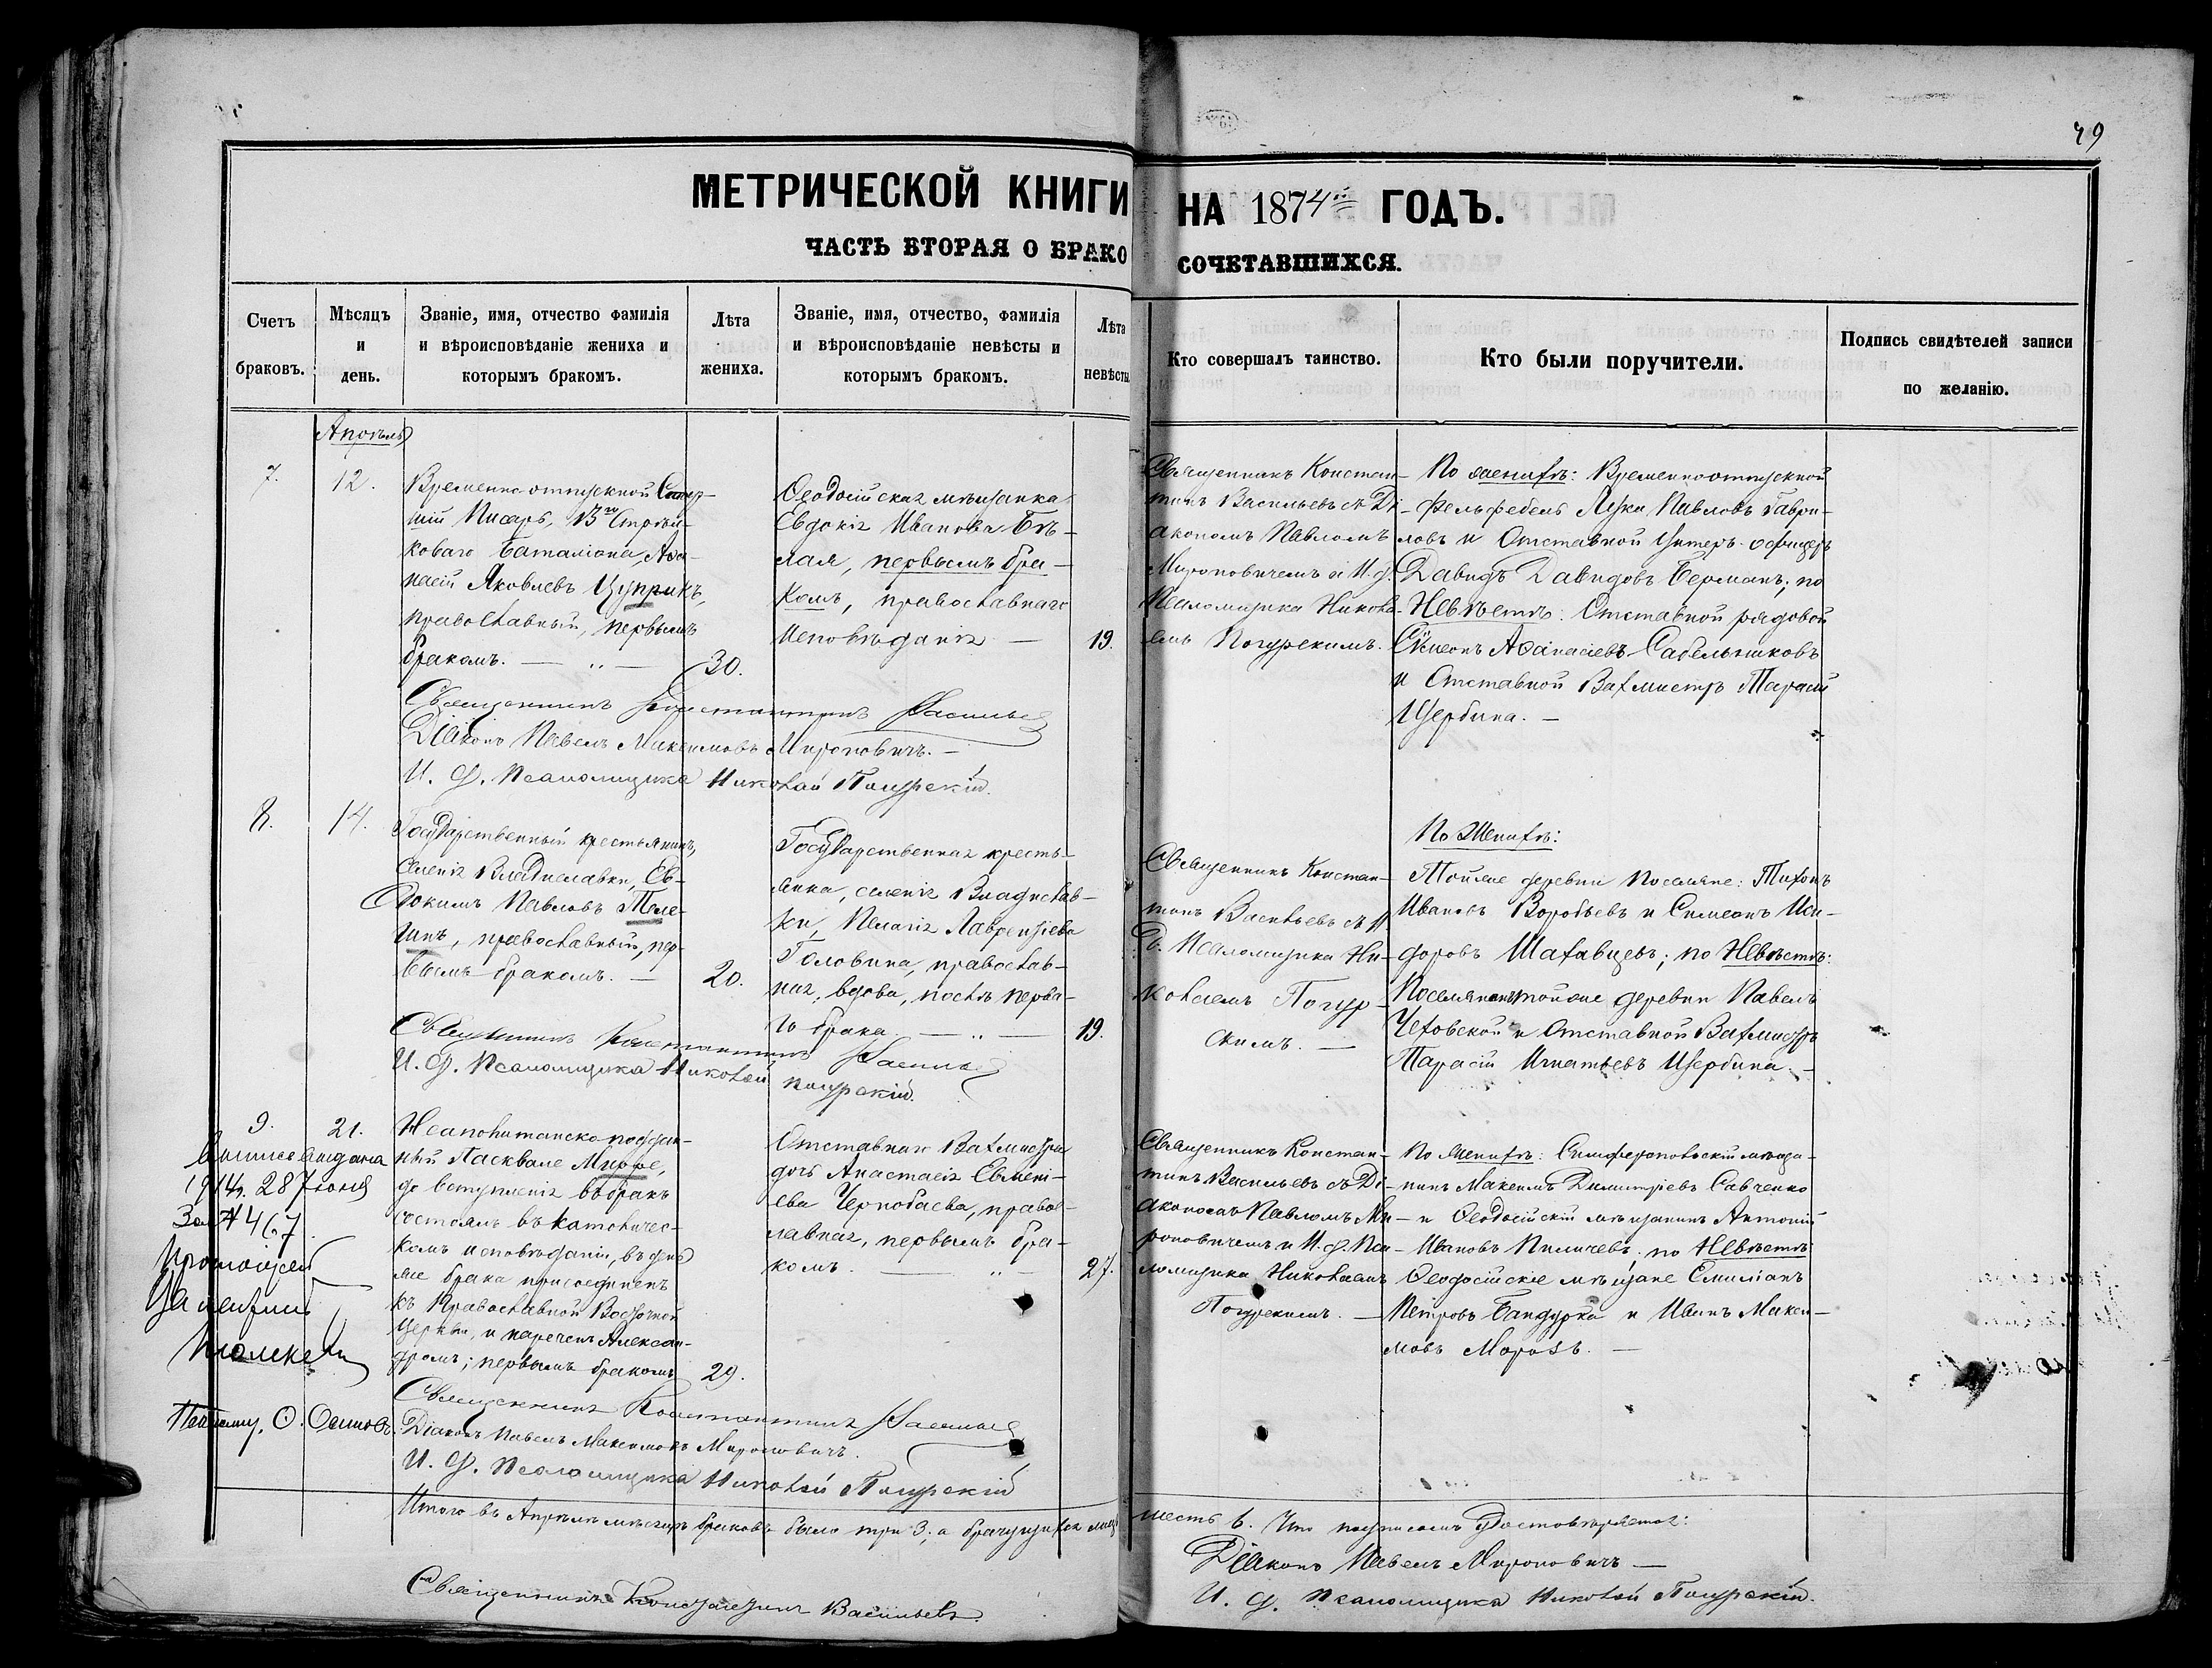 79
МЕТРИЧЕСКОЙ КНИГИ НА 1874й ГОДЪ.
ЧАСТЬ ВТОРАЯ О БРАКОСОЧЕТАВШИХСЯ.
Счетъ браковъ.
Мѣсяцъ и день.
Званіе, имя, отчество фамилія
и вѣроисповѣданіе жениха и
которымъ бракомъ.
Лѣта жениха.
Званіе, имя, отчество, фамилія
и вѣроисповѣданіе невѣсты и
которымъ бракомъ.
Лѣта невѣсты
Кто совершалъ таинство.
Кто были поручители.
Подпись свидѣтелей записи
по желанію.
Апрѣль
7.
12.
Временно отпускной Стар-
шій Писарь, 13го Стрѣл-
коваго Баталіона, Аѳа-
насій Яковлевъ Цуприкъ,
православный, первымъ
бракомъ. — „ —
30.
Ѳеодосійская мѣщанка
Евдокія Иванова Бѣ-
лая, первымъ бра-
комъ, православнаго
исповѣданія —
19.
Священникъ Констан-
тинъ Васильевъ съ Ді-
акономъ Павломъ
Мироновичемъ и И. д.
Псаломщика Никола-
емъ Погурскимъ.
По женихѣ: Временноотпускной
Фельдфебель Лука Павловъ Гаври-
ловъ и Отставной Унтеръ-офицеръ
Давидъ Давидовъ Берманъ; по
Невѣстѣ: Отставной рядовой
Сѵмеонъ Аѳанасіевъ Сабельниковъ
и Отставной Вахмистръ Тарасій
Щербина. —
Священникъ Константинъ Васильевъ
Діаконъ Павелъ Максимовъ Мироновичъ. —
И. д. Псаломщика Николай Погурскій.
8.
14.
Государственный крестьянинъ,
селенія Владиславки, Ев-
докимъ Павловъ Теле-
гинъ, православный, пер-
вымъ бракомъ. —
20.
Государственная кресть-
янка, селенія Владислав-
ки, Пелагія Лаврентіева
Головина, православ-
ная, вдова, послѣ перва-
го брака. — „ —
19.
Священникъ Констан-
тинъ Васильевъ съ И.
д. Псаломщика Ни-
колаемъ Погур-
скимъ. —
По Женихѣ:
Тойже деревни поселяне: Тихонъ
Ивановъ Воробьевъ и Симеонъ Иси-
доровъ Шатавцевъ; по Невѣстѣ:
Поселянинъ тойже деревни Павелъ
Чеховской и Отставной Вахмистръ
Тарасій Игнатьевъ Щербина. —
Священникъ Константинъ Васильевъ
И. д. Псаломщика Николай
Погурскій.
9.
21.
Выпись выдана
1914г. 28 Іюня
За № 467
Протоіерей
Псаломщ. Ѳ.
Неаполитанско-поддан-
ный Пасквале Мирре,
до вступленія въ бракъ
состоялъ въ католичес-
комъ исповѣданіи, въ день
же брака присоединенъ
къ Православной Восточной
Церкви, и нареченъ Алексан-
дромъ; первымъ бракомъ
29.
Отставнаго Вахмистра
дочь Анастасія Евмені-
ева Чернобаева, правос-
лавная, первымъ бра-
комъ. — „ —
27.
Священникъ Констан-
тинъ Васильевъ съ Ді-
акономъ Павломъ Ми-
роновичемъ и И. д. Пса-
ломщика Николаемъ
Погурскимъ. —
По Женихѣ: Симферопольскій мѣща-
нинъ Максимъ Димитріевъ Савченко
и Ѳеодосійскій мѣщанинъ Антоній
Ивановъ Пиличевъ. по Невѣстѣ
Ѳеодосійскіе мѣщане Емиліанъ
Петровъ Бандурка и Иванъ Макси-
мовъ Морозъ. —
Священникъ Константинъ Васильевъ
Діаконъ Павелъ Максимовъ Мироновичъ.
И. д. Псаломщика Николай Погурскій
Итого въ Апрѣлѣ мѣсяцѣ браковъ было три 3; а брачущихся лицъ шесть 6. Что подписомъ удостовѣряемъ:
Священникъ Константинъ Васильевъ.
Діаконъ Павелъ Мироновичъ —
И. д. Псаломщика Николай Погурскій.